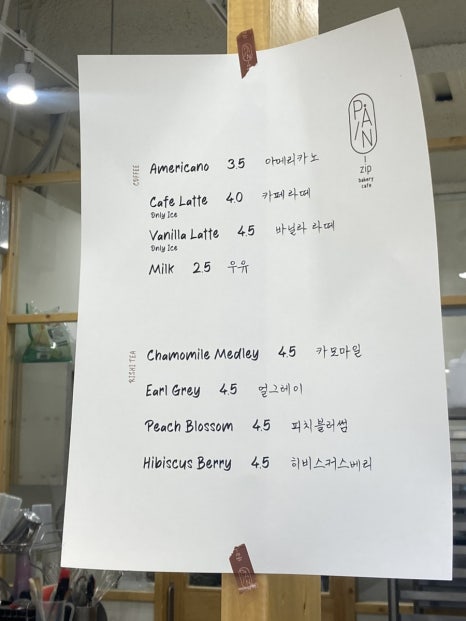 PAIN
zip
bakery
cafe
COFFEE
Americano 3.5 아메리카노
Cafe Latte 4.0 카페라떼
Only Ice
Vanilla Latte 4.5 바닐라 라떼
Only Ice
Milk 2.5 우유
RISHI TEA
Chamomile Medley 4.5 카모마일
Earl Grey 4.5 얼그레이
Peach Blossom 4.5 피치블러썸
Hibiscus Berry 4.5 히비스커스베리